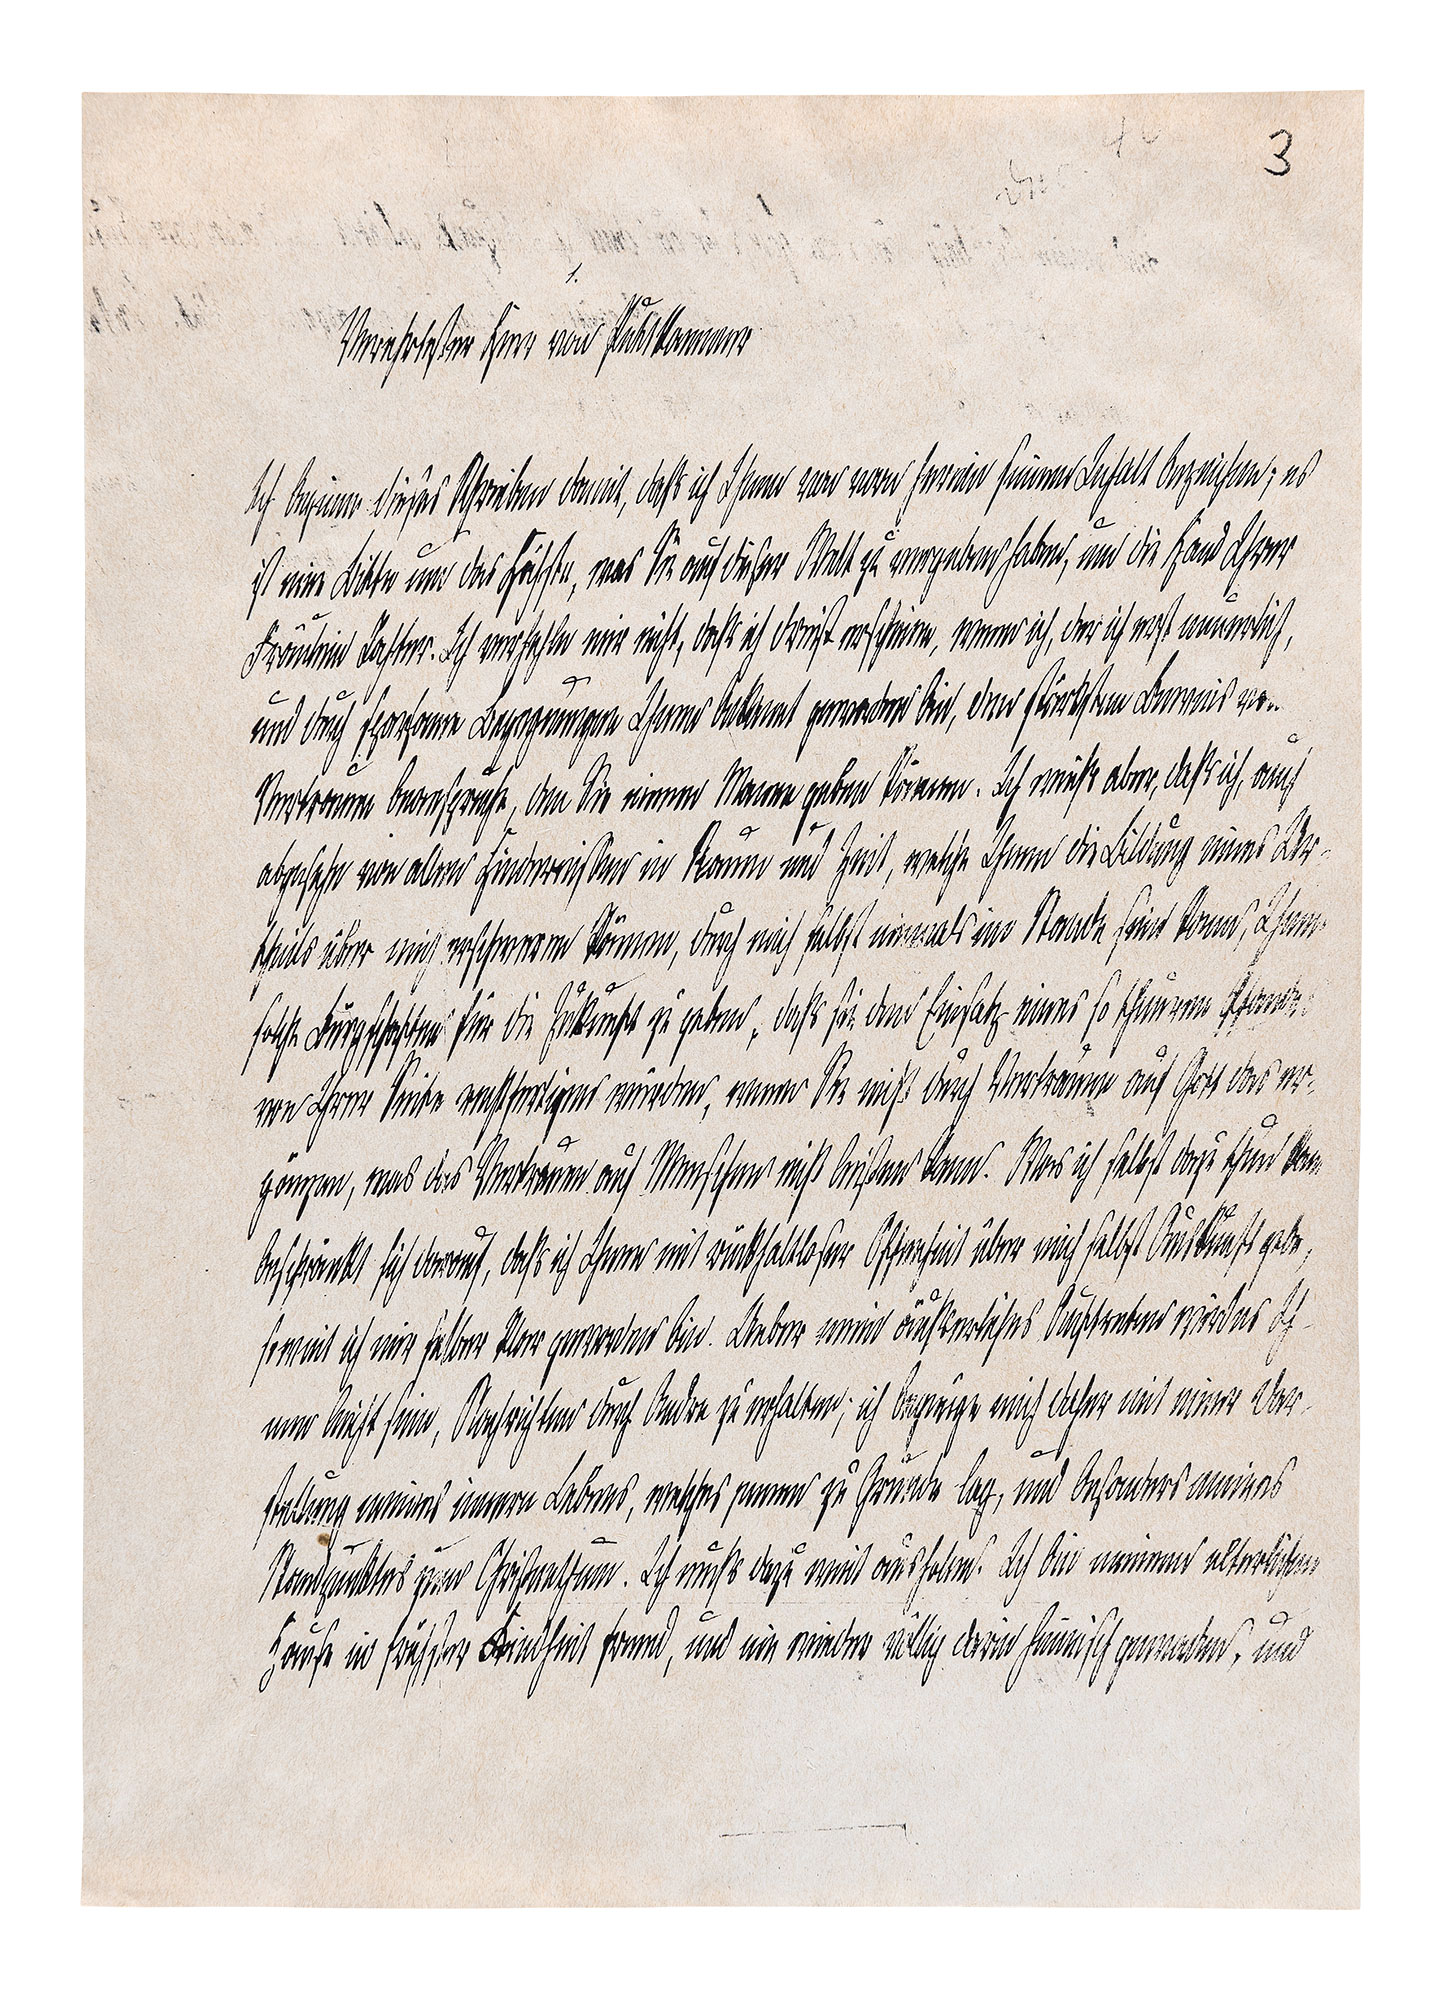 3
1.
Verehrtester Herr von Puttkammer
Ich beginne dieses Schreiben damit, daß ich Ihnen von vorn herein seinen Inhalt bezeichne; es
ist eine Bitte um das Höchste, was Sie auf dieser Welt zu vergeben haben, um die Hand Ihrer
Fräulein Tochter. Ich verhehle mir nicht, daß ich dreist erscheine, wenn ich, der ich erst neuerlich,
und durch sparsame Begegnungen Ihnen bekannt geworden bin, den stärksten Beweis von
Vertrauen beanspruche, den Sie einem Manne geben können. Ich weiß aber, daß ich, auch
abgesehn von allen Hindernissen in Raum und Zeit, welche Ihnen die Bildung eines Ur-
theils über mich erschweren können, durch mich selbst niemals im Stande sein kann, Ihnen
solche Bürgschaften für die Zukunft zu geben, daß sie den Einsatz eines so theuren Pfandes
von Ihrer Seite rechtfertigen würden, wenn Sie nicht durch Vertrauen auf Gott das er-
gänzen, was das Vertrauen auf Menschen nicht leisten kann. Was ich selbst dazu thun kann
beschränkt sich darauf, daß ich Ihnen mit rückhaltloser Offenheit über mich selbst Auskunft gebe,
soweit ich mir selber klar geworden bin. Ueber mein äußerliches Auftreten wird es Ih-
nen leicht sein, Nachrichten durch Andre zu erhalten; ich begnüge mich daher mit einer Dar-
stellung meines innern Lebens, welches jenem zu Grunde lag, und besonders meines
Standpunktes zum Christenthum. Ich muß dazu weit ausholen. Ich bin meinem elterlichen
Hause in frühster Kindheit fremd, und nie wieder völlig darin heimisch geworden, und